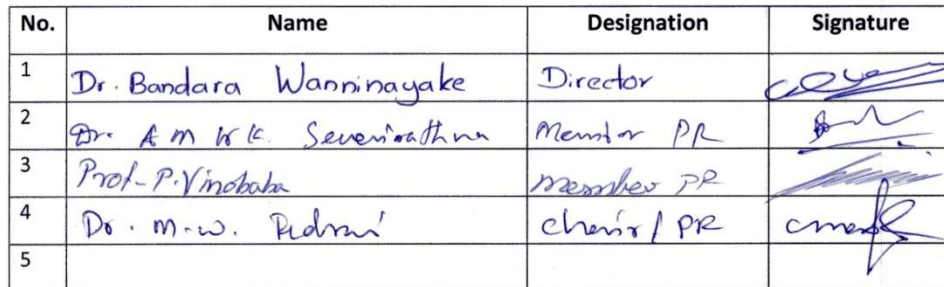 No. Name Designation Signature
1 Dr. Bandara Wanninayake Director
2 Dr. A M W K. Senevirathna Member PR
3 Prof. P. Vinobaba Member PR
4 Dr. M.W. Chair / PR
5